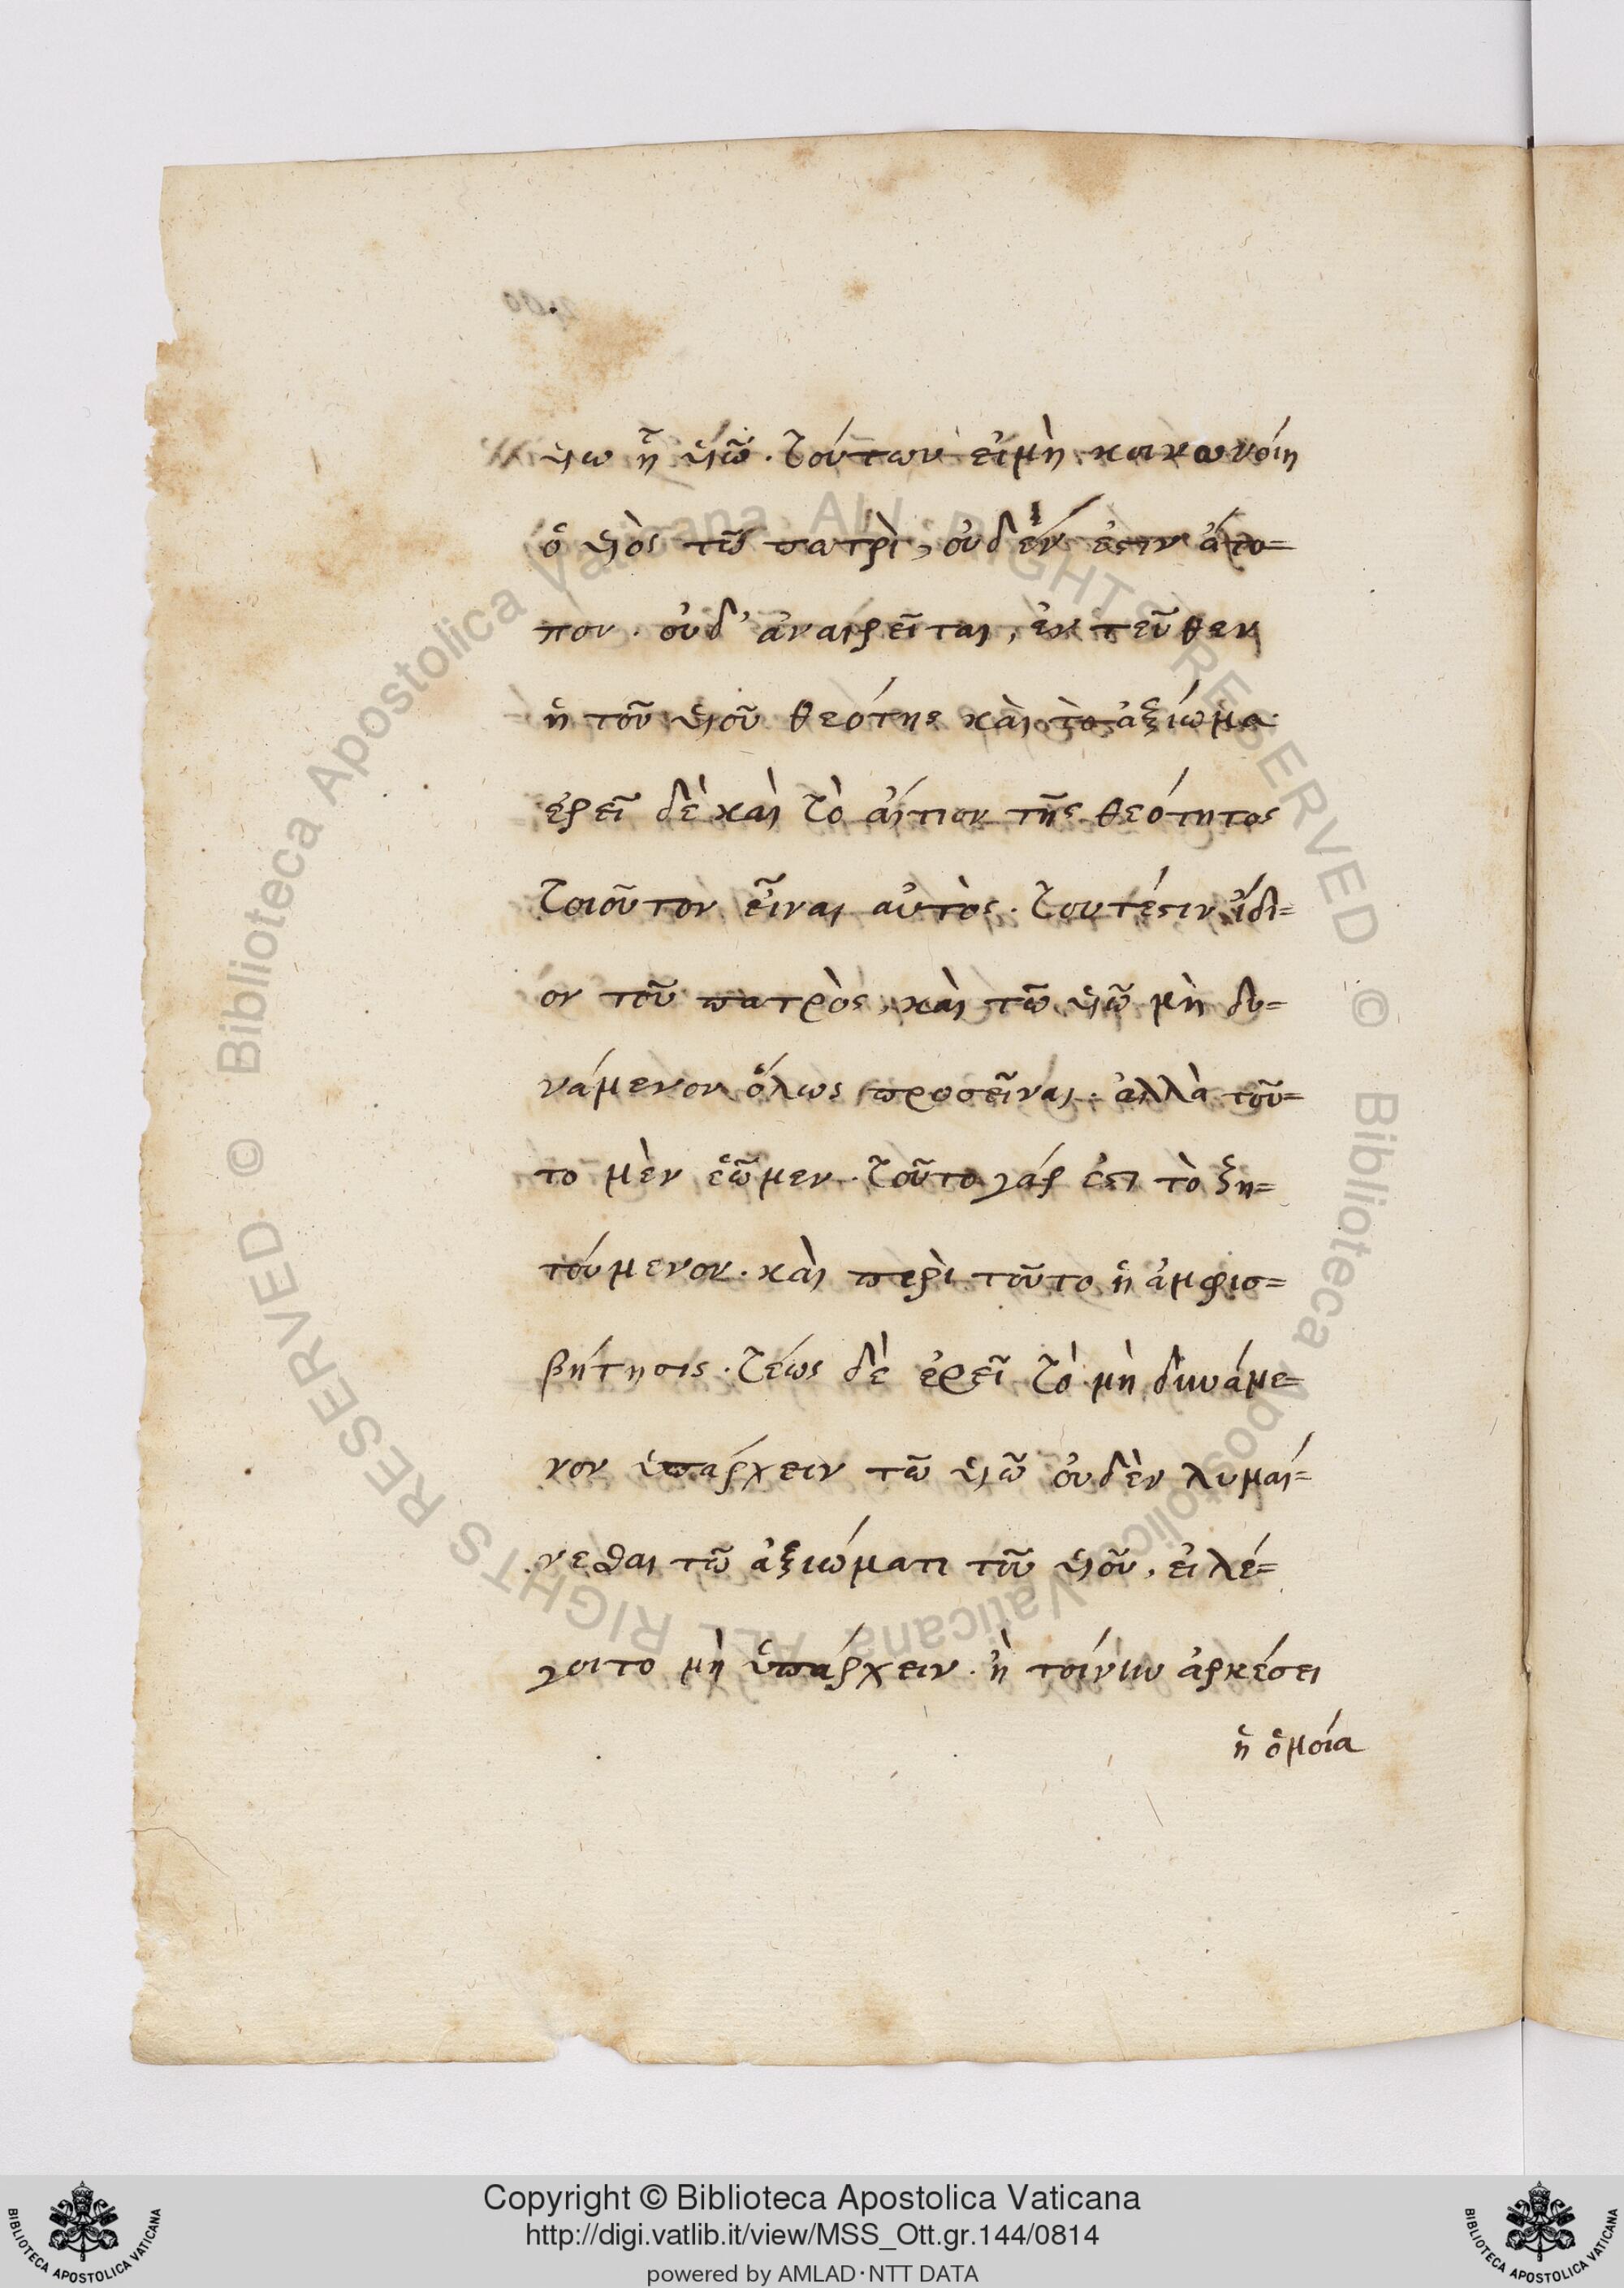 υἱω ἢ υἱῶ. τούτων εἰμὴ κοινωνόιη
ὁ υἱὸς τῶ πατρὶ, οὐδέν ἐστιν ἄτο=
πον. οὐδ' ἀναιρεῖται, ἐντεῦθεν
ἡ τοῦ υἱοῦ θεότης καὶ τὸ ἀξίωμα
ἐρεῖ δὲ καὶ τὸ ἄιτιον τῆς θεότητος
τοιοῦτον εἶναι αὐτὸς. τουτέστιν ἴδι=
ον τοῦ πατρὸς, καὶ τῶ υἱῶ μὴ δυ=
νάμενον ὅλως προσεῖναι. ἀλλὰ τοῦ=
το μὲν ἐῶμεν. τοῦτο γάρ ἐστι τὸ ζη=
τούμενον. καὶ περὶ τοῦτο ἡ ἀμφισ=
βήτησις. τέως δὲ ἐρεῖ τὸ μὴ δυνάμε=
νον ὑπάρχειν τῶ υἱῶ οὐδὲν λυμαί=
νεσθαι τῶ ἀξιώματι τοῦ υἱοῦ, εἰ λέ=
γοιτο μὴ ὑπάρχειν. ἢ τοίνυν ἀρκέσει
ἡ ὁμοία
Copyright © Biblioteca Apostolica Vaticana
http://digi.vatlib.it/view/MSS_Ott.gr.144/0814
powered by AMLAD·NTT DATA
BIBLIOTECA APOSTOLICA VATICANA
BIBLIOTECA APOSTOLICA VATICANA
© Biblioteca Apostolica Vaticana ALL RIGHTS RESERVED
© Biblioteca Apostolica Vaticana ALL RIGHTS RESERVED